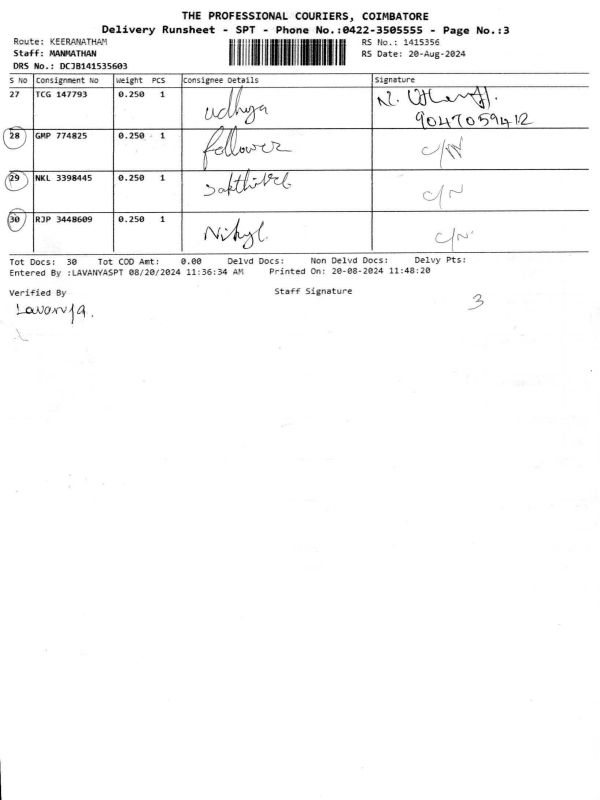 THE PROFESSIONAL COURIERS, COIMBATORE
Delivery Runsheet - SPT - Phone No.:0422-3505555 - Page No.:3
Route: KEERANATHAM RS No.: 1415356
Staff: MANMATHAN RS Date: 20-Aug-2024
DRS No.: DCJB141535603
S No Consignment No Weight PCS Consignee Details Signature
27 TCG 147793 0.250 1 udhya N.
9047059412
28 GMP 774825 0.250 1 follower C/N
29 NKL 3398445 0.250 1 Sakthivel C/N
30 RJP 3448609 0.250 1 C/N
Tot Docs: 30 Tot COD Amt: 0.00 Delvd Docs: Non Delvd Docs: Delvy Pts:
Entered By :LAVANYASPT 08/20/2024 11:36:34 AM Printed On: 20-08-2024 11:48:20
Verified By Staff Signature
Lavanya. 3